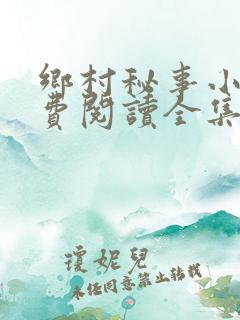 鄉村秘事小
費閱讀全集
瓊妮兒
未經同意禁止轉載